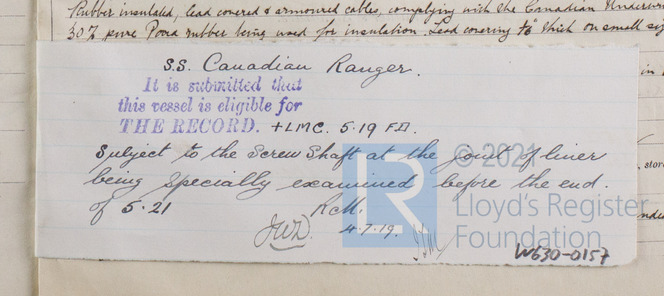 Rubber insulated, lead covered & armoured cables, complying with the Canadian Underw
30% pure Para rubber being used for insulation. Lead covering thick on small
S.S. Canadian Ranger.
It is submitted that
this vessel is eligible for
THE RECORD. +LMC. 5.19 F.D.
Subject to the Screw Shaft at the joint of liner
being specially examined before the end.
of 5.21
R.C.M.
JWD. 4.7.19.
© 2021
LR
Lloyd's Register
Foundation
W630-0157
, stor